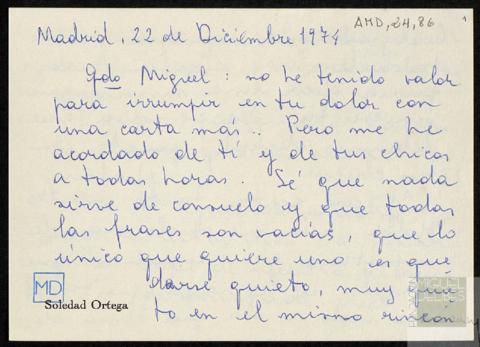 AMD, 24, 86
1
Madrid, 22 de Diciembre 1974
Qdo Miguel: no he tenido valor
para irrumpir en tu dolor con
una carta más.. Pero me he
acordado de tí y de tus chicos
a todas horas. Sé que nada
sirve de consuelo y que todas
las frases son vacías, que lo
único que quiere uno es que
darse quieto, muy quie
to en el mismo rincón
MD
Soledad Ortega
MIGUEL
DELIBES